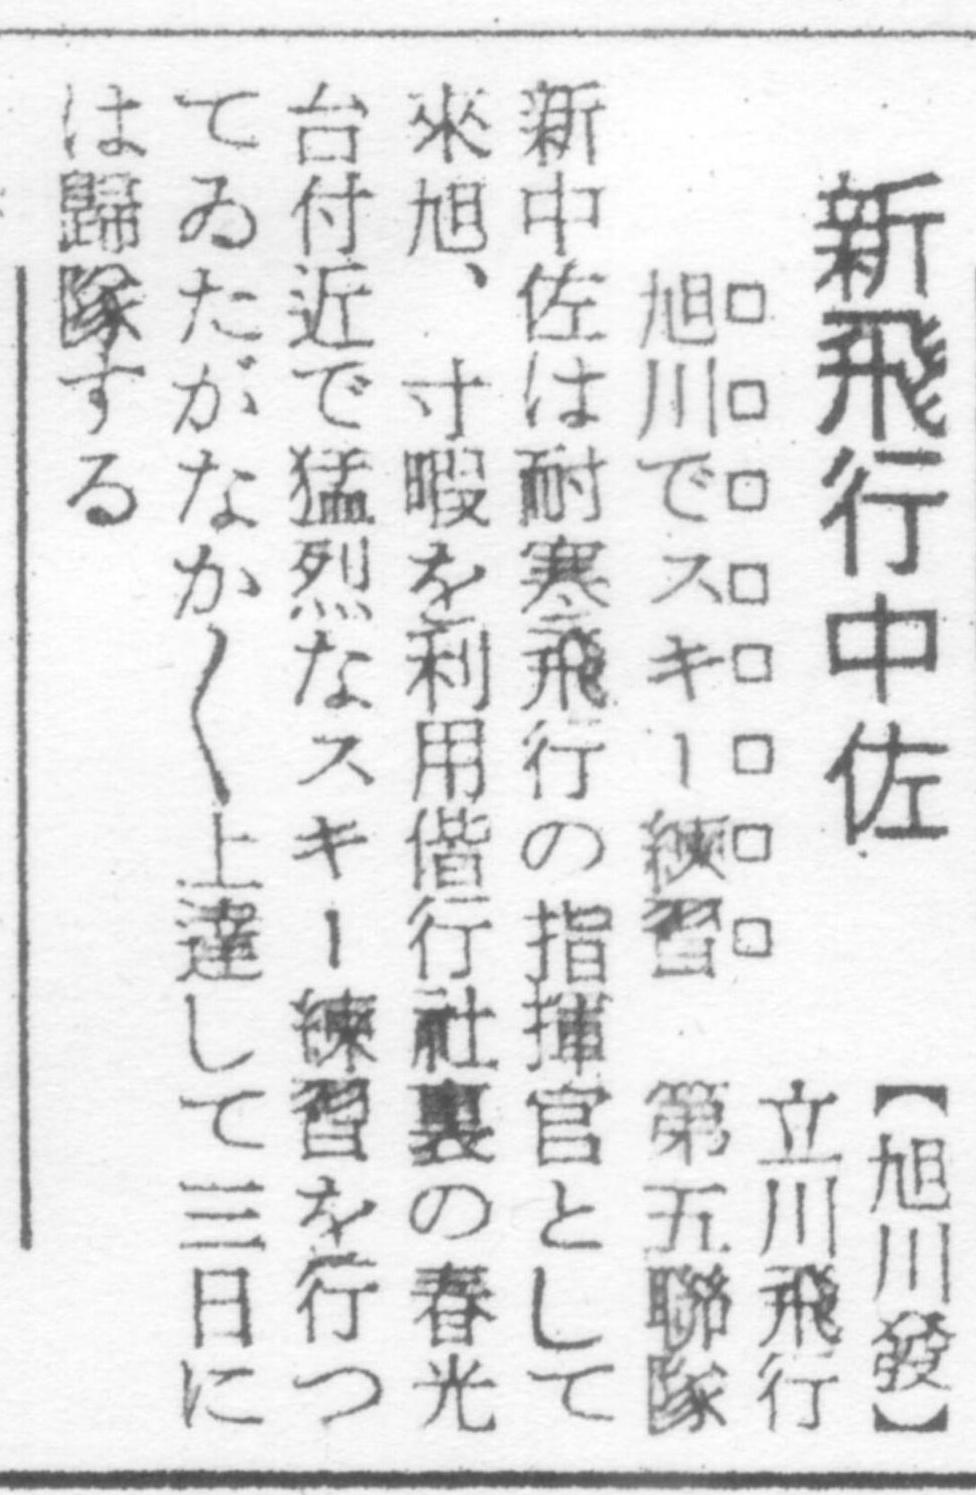 新飛行中佐
旭川でスキー練習
【旭川發】
立川飛行
第五聯隊
新中佐は耐寒飛行の指揮官として
來旭、寸暇を利用偕行社裏の春光
台付近で猛烈なスキー練習を行つ
てゐたがなか〱上達して三日に
は歸隊する